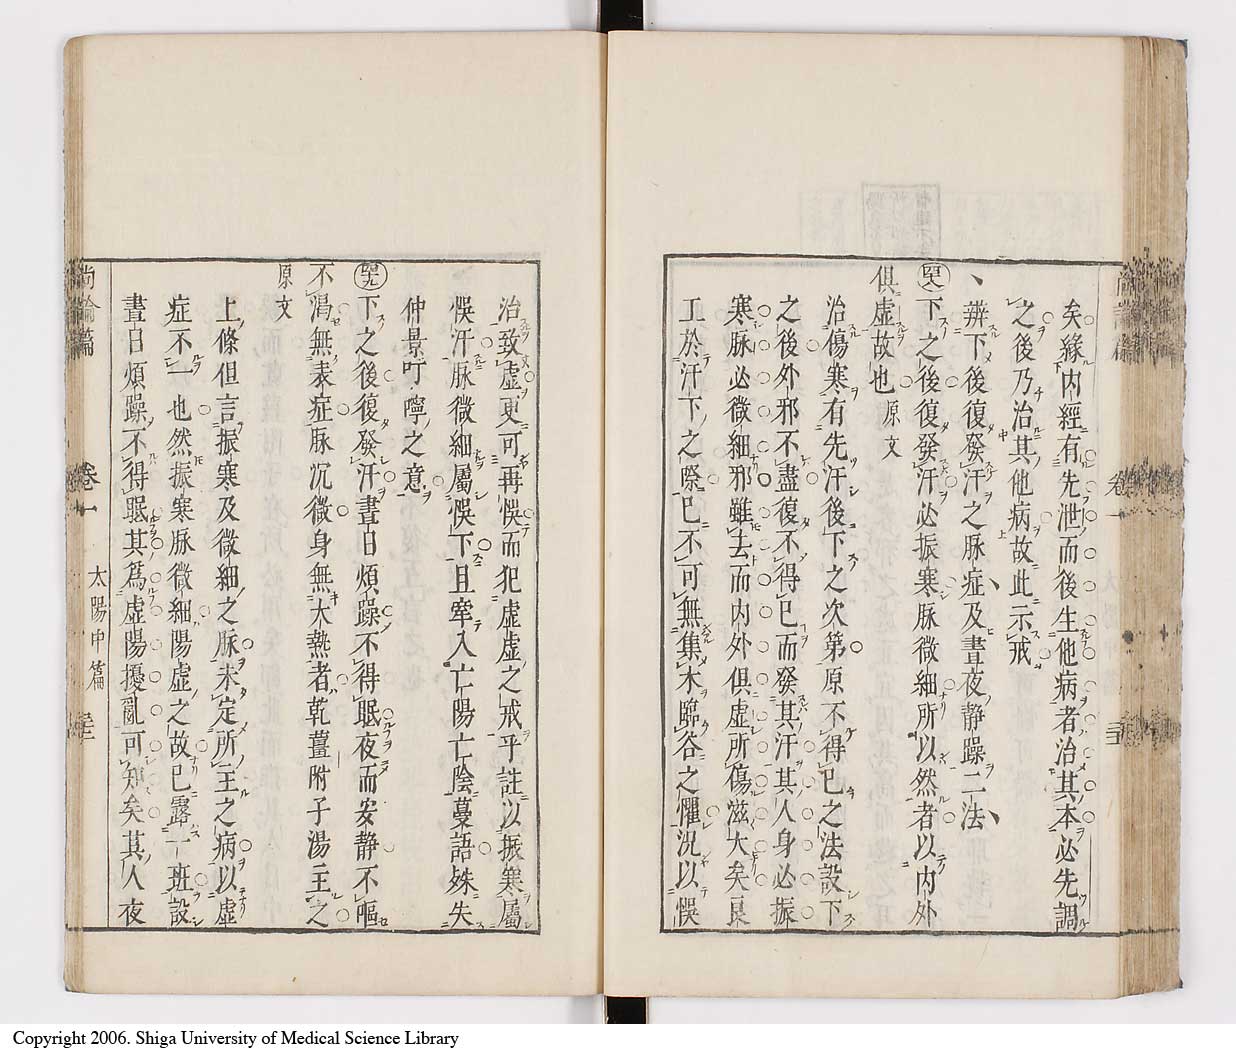 矣緣内經有先泄而後生他病者治其本必先調
之後乃治其他病故此示戒
辨下後復發汗之脉症及晝夜静躁二法
下之後復發汗必振寒脉微細所以然者以内外
俱虚故也 原文
治傷寒有先汗後下之次第原不得已之法設下
之後外邪不盡復不得已而發其汗其人身必振
寒脉必微細邪雖去而内外俱虚所傷滋大矣良
工於汗下之際已不可無集木臨谷之懼況以悮
治致虚更可再悮而犯虚虚之戒乎註以振寒屬
悮汗脉微細屬悮下且牽入亡陽亡陰蔓語殊失
仲景叮嚀之意
下之後復發汗晝日煩躁不得眠夜而安静不嘔
不渇無表症脉沉微身無大熱者乾薑附子湯主之
原文
上條但言振寒及微細之脉未定所主之病以虚
症不一也然振寒脉微細陽虚之故已露一班設
晝日煩躁不得眠其為虚陽擾亂可知矣其人夜
尚論篇 卷一 太陽中篇
Copyright 2006. Shiga University of Medical Science Library